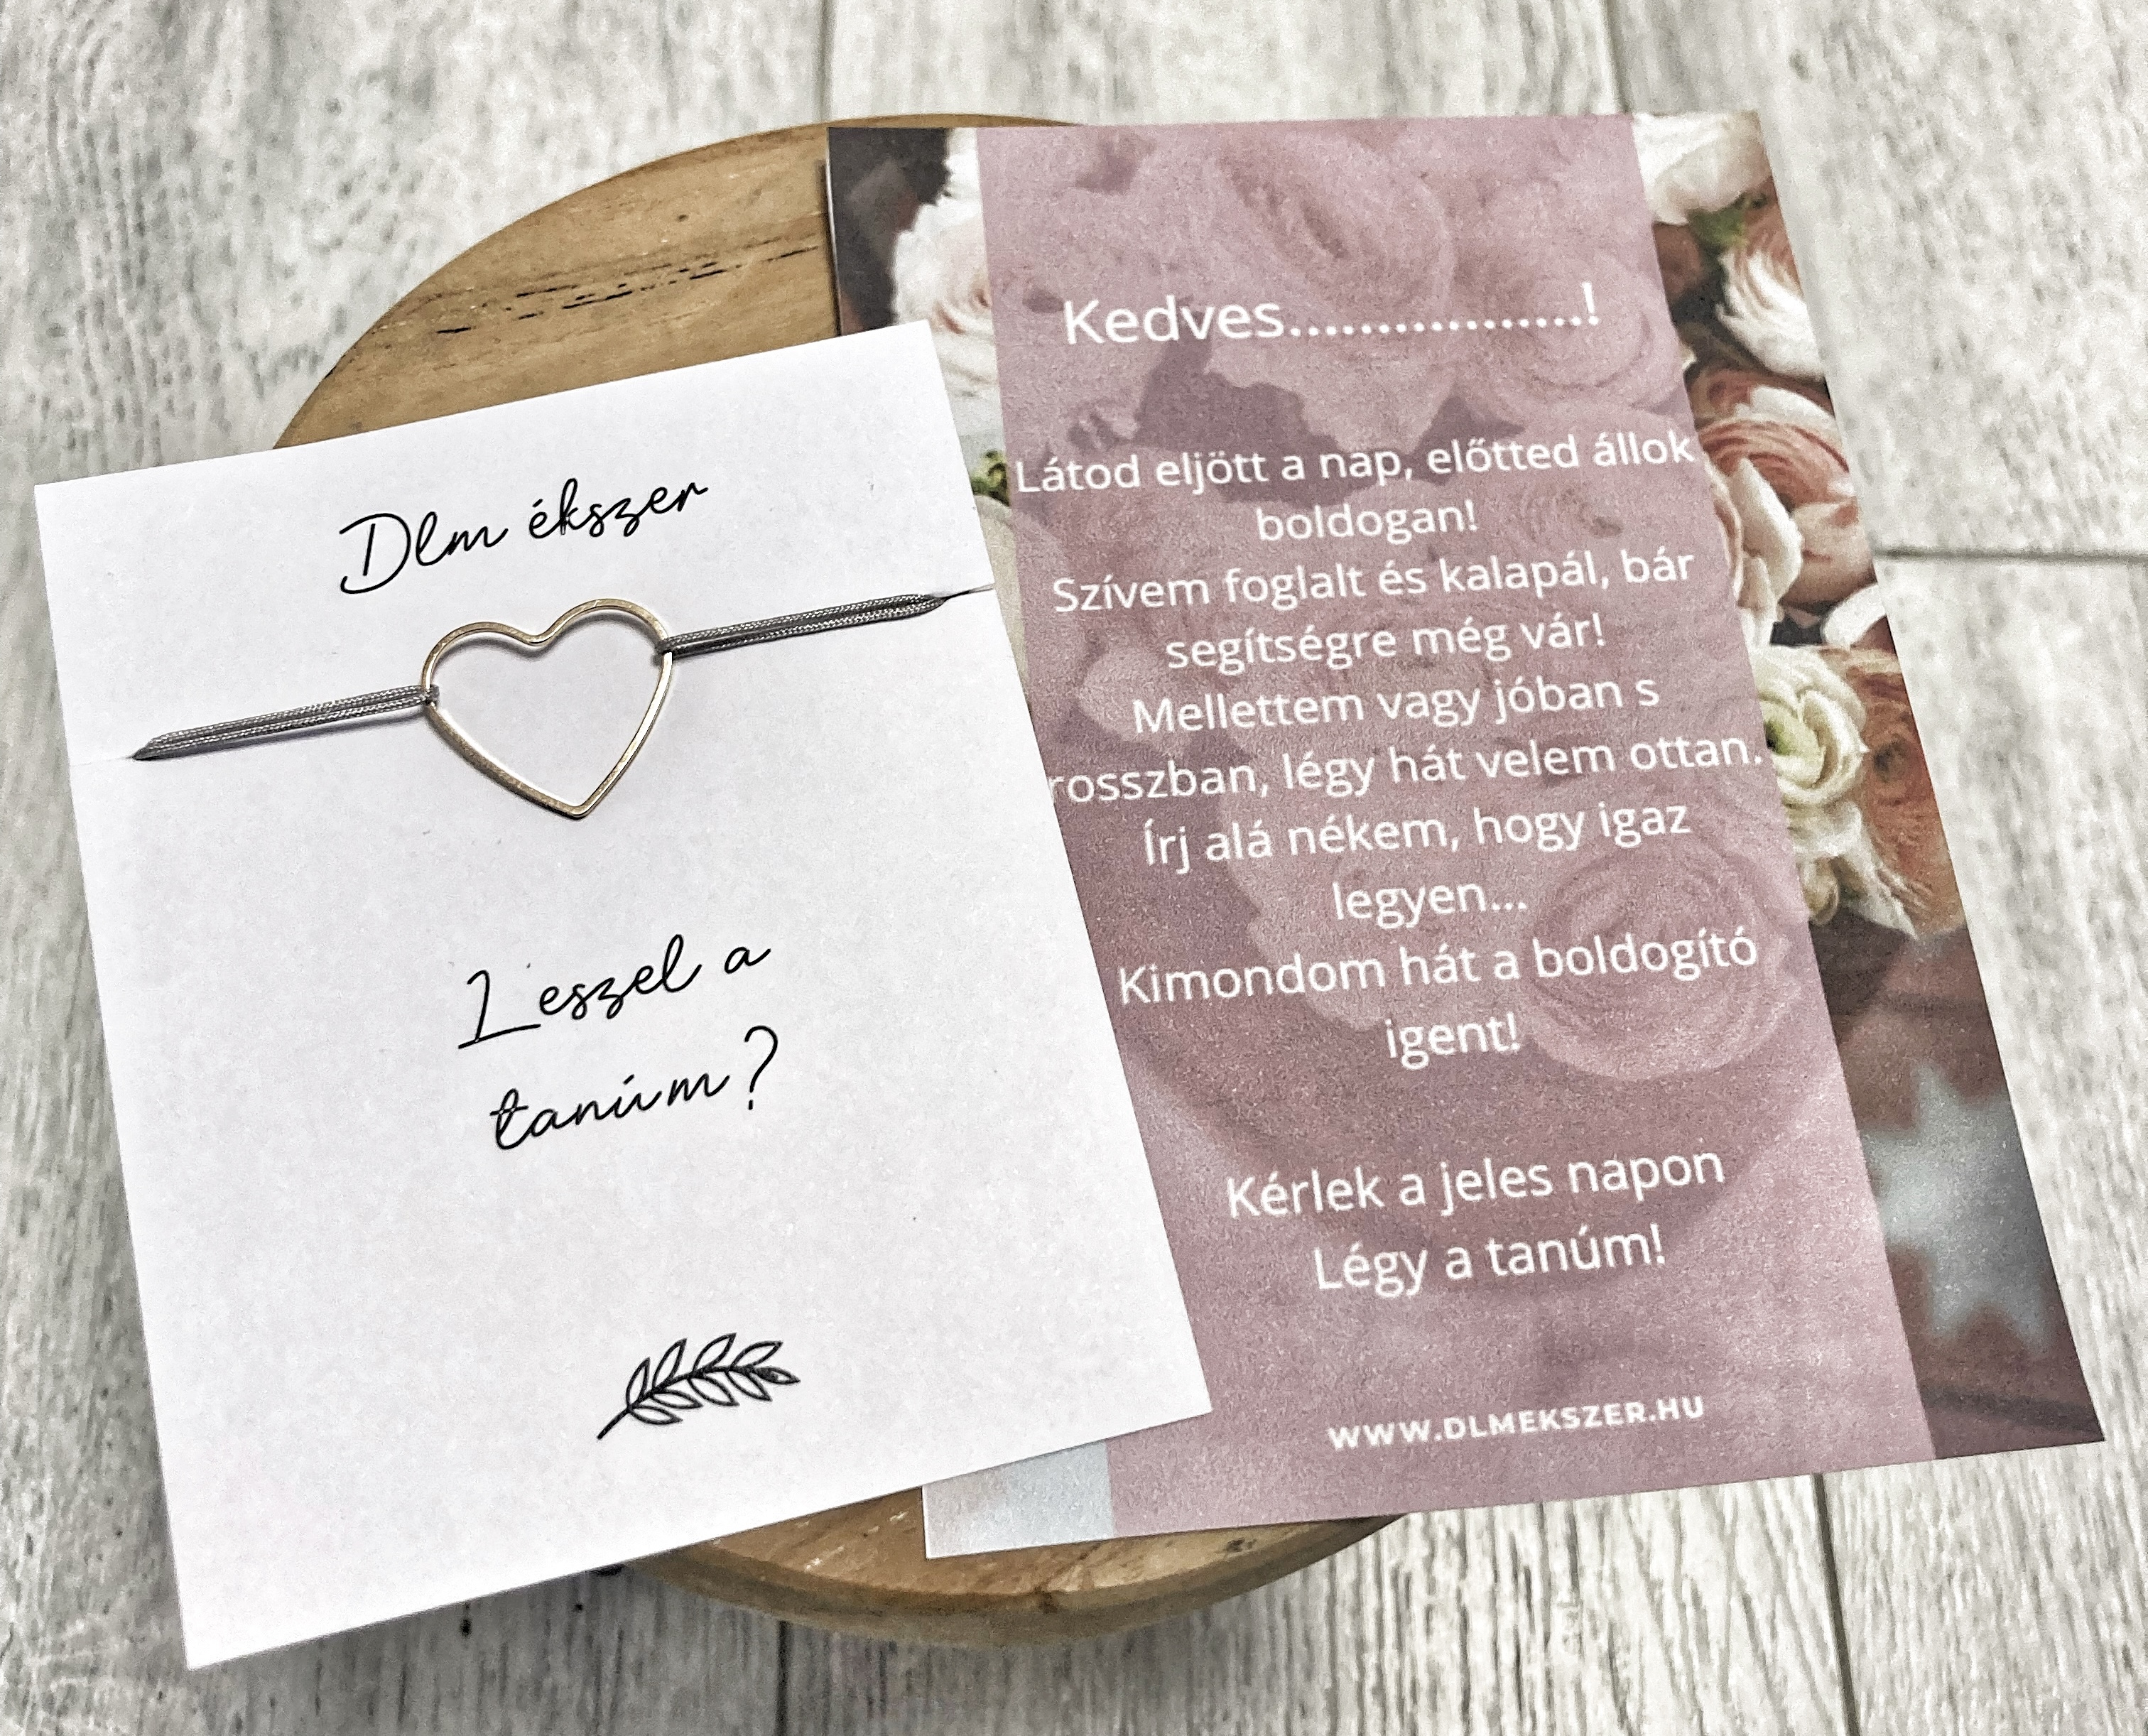 Dlm ékszer
Leszel a
tanúm?
Kedves.................!
Látod eljött a nap, előtted állok
boldogan!
Szívem foglalt és kalapál, bár
segítségre még vár!
Mellettem vagy jóban s
rosszban, légy hát velem ottan.
Írj alá nékem, hogy igaz
legyen...
Kimondom hát a boldogító
igent!
Kérlek a jeles napon
Légy a tanúm!
WWW.DLMEKSZER.HU